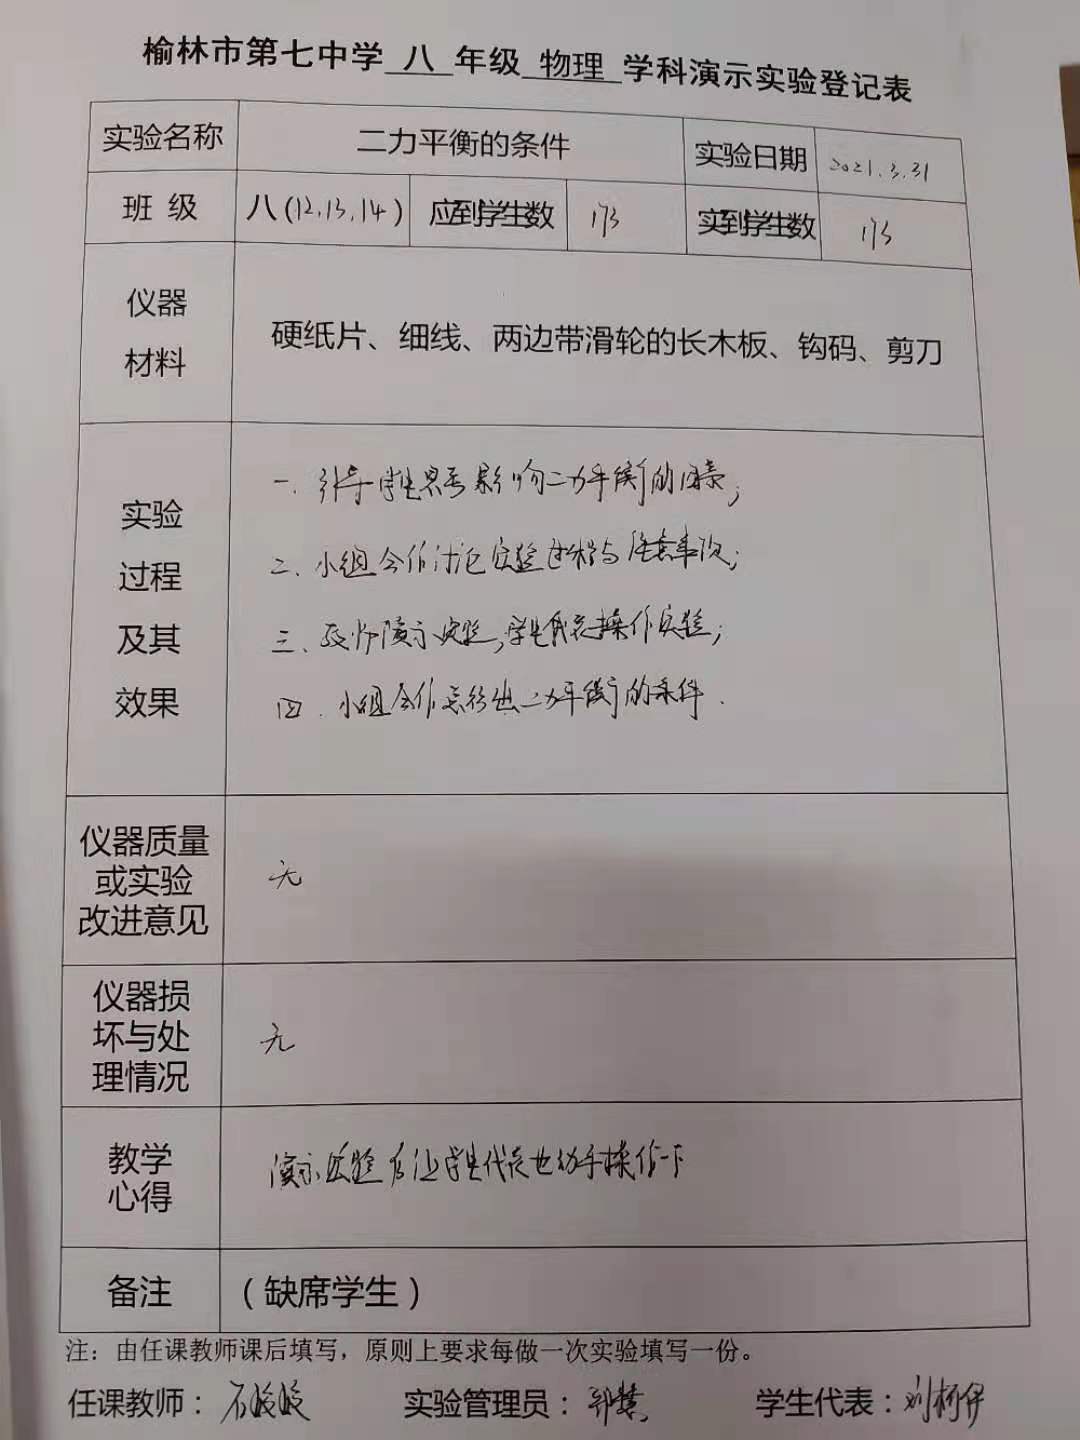 榆林市第七中学 八 年级 物理 学科演示实验登记表
实验名称 二力平衡的条件 实验日期 2021.3.31
班级 八(12.13.14) 应到学生数 173 实到学生数 173
仪器
材料
硬纸片、细线、两边带滑轮的长木板、钩码、剪刀
实验
过程
及其
效果
一.引导学生思考影响二力平衡的因素;
二、小组合作讨论实验过程与注意事项;
三、教师演示实验,学生代表操作实验;
四.小组合作总结出二力平衡的条件.
仪器质量
或实验
改进意见
无
仪器损
坏与处
理情况
无
教学
心得
演示实验后让学生代表也动手操作一下
备注 (缺席学生)
注：由任课教师课后填写，原则上要求每做一次实验填写一份。
任课教师： 实验管理员： 学生代表：